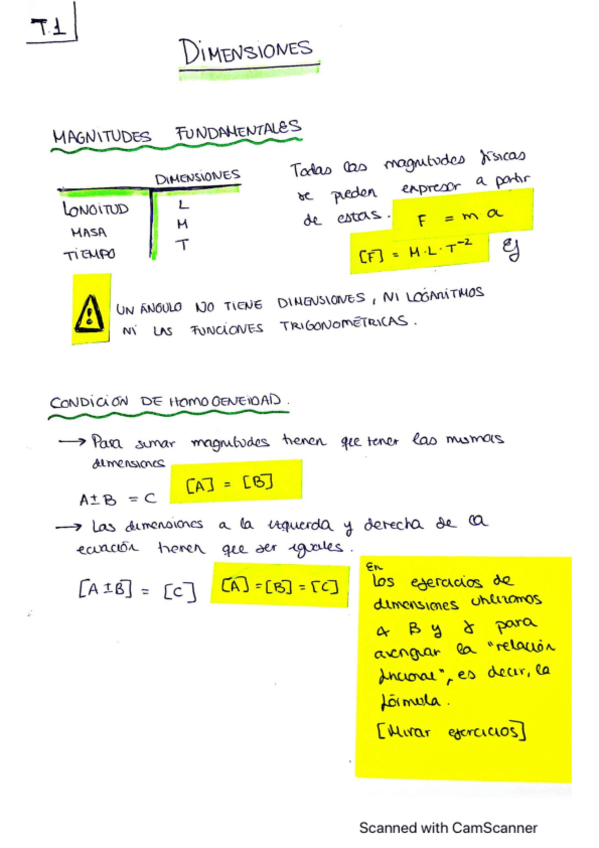 T.1
DIMENSIONES
MAGNITUDES FUNDAMENTALES
DIMENSIONES
LONGITUD L
MASA M
TIEMPO T
Todas las magnitudes físicas
se pueden expresar a partir
de estas. F = m a
[F] = M·L·T⁻² Ej
UN ÁNGULO NO TIENE DIMENSIONES, NI LOGARITMOS
NI LAS FUNCIONES TRIGONOMÉTRICAS.
CONDICIÓN DE HOMOGENEIDAD.
→ Para sumar magnitudes tienen que tener las mismas
dimensiones
A±B = C [A] = [B]
→ Las dimensiones a la izquierda y derecha de la
ecuación tienen que ser iguales.
[A±B] = [C] [A]=[B]=[C]
En
los ejercicios de
dimensiones utilizamos
α β y γ para
averiguar la "relación
funcional", es decir, la
fórmula.
[Mirar ejercicios]
Scanned with CamScanner